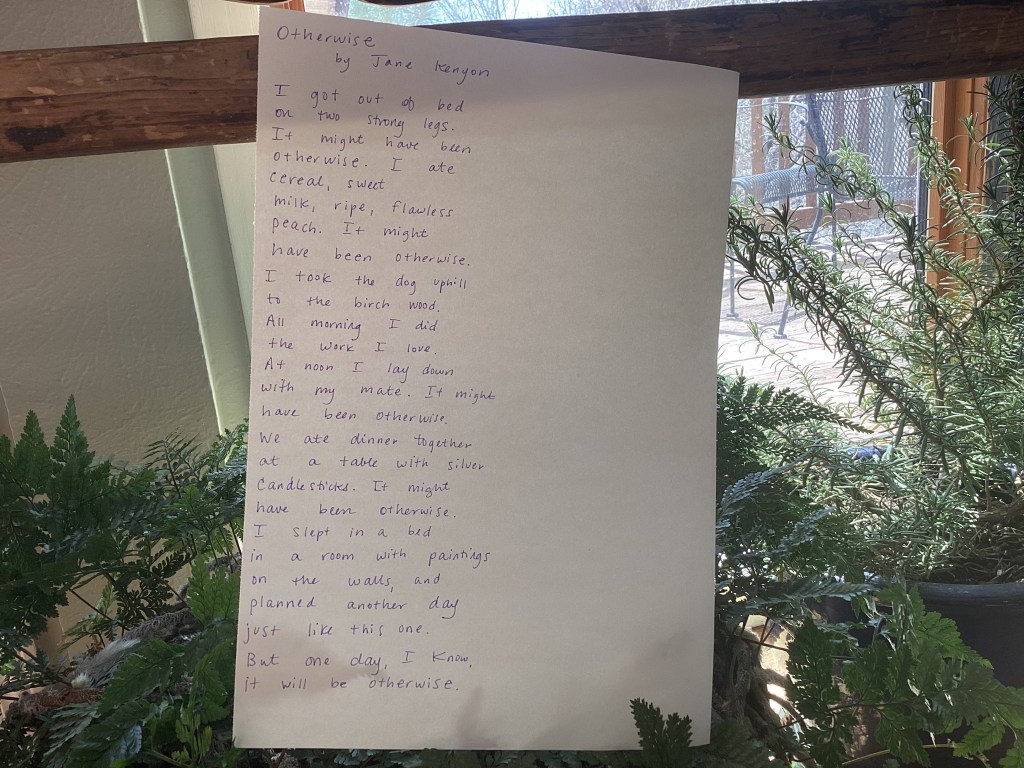 Otherwise
by Jane Kenyon
I got out of bed
on two strong legs.
It might have been
otherwise. I ate
cereal, sweet
milk, ripe, flawless
peach. It might
have been otherwise.
I took the dog uphill
to the birch wood.
All morning I did
the work I love.
At noon I lay down
with my mate. It might
have been otherwise.
We ate dinner together
at a table with silver
candlesticks. It might
have been otherwise.
I slept in a bed
in a room with paintings
on the walls, and
planned another day
just like this one.
But one day, I know,
it will be otherwise.